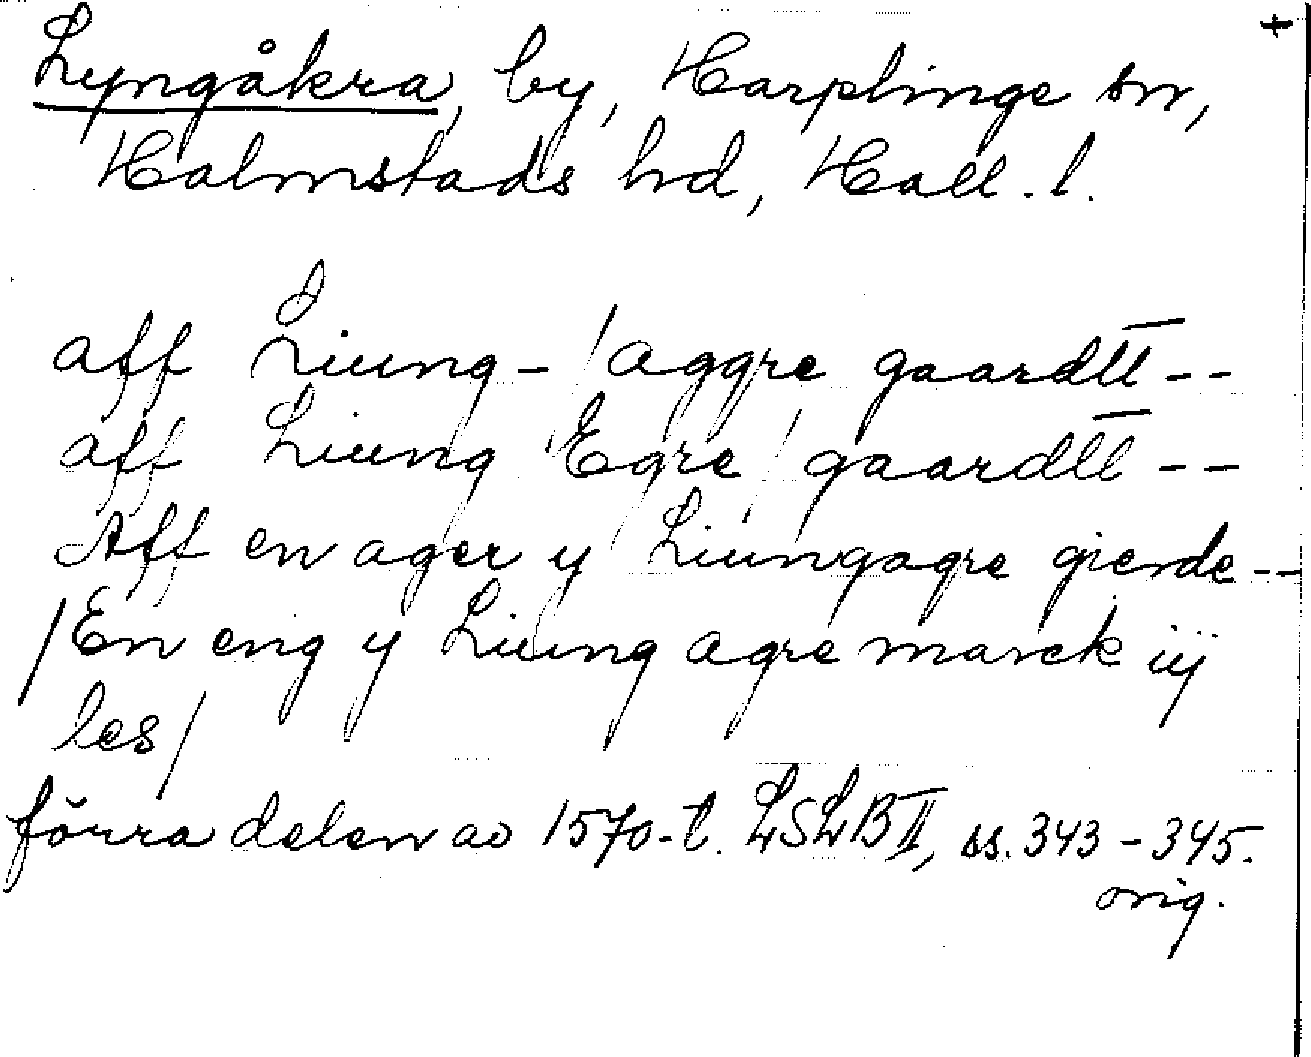 +
Lyngåkra, by, Harplinge sn,
Halmstads hd, Hall. l.
aff Liung-/aggre gaardtt--
aff Liung Egre/gaardtt--
Aff en ager y Liungagre gierde--
/En eng y Liung agre marck iij
les/
förra delen av 1570-t. LSLB II, ss. 343-345.
orig.